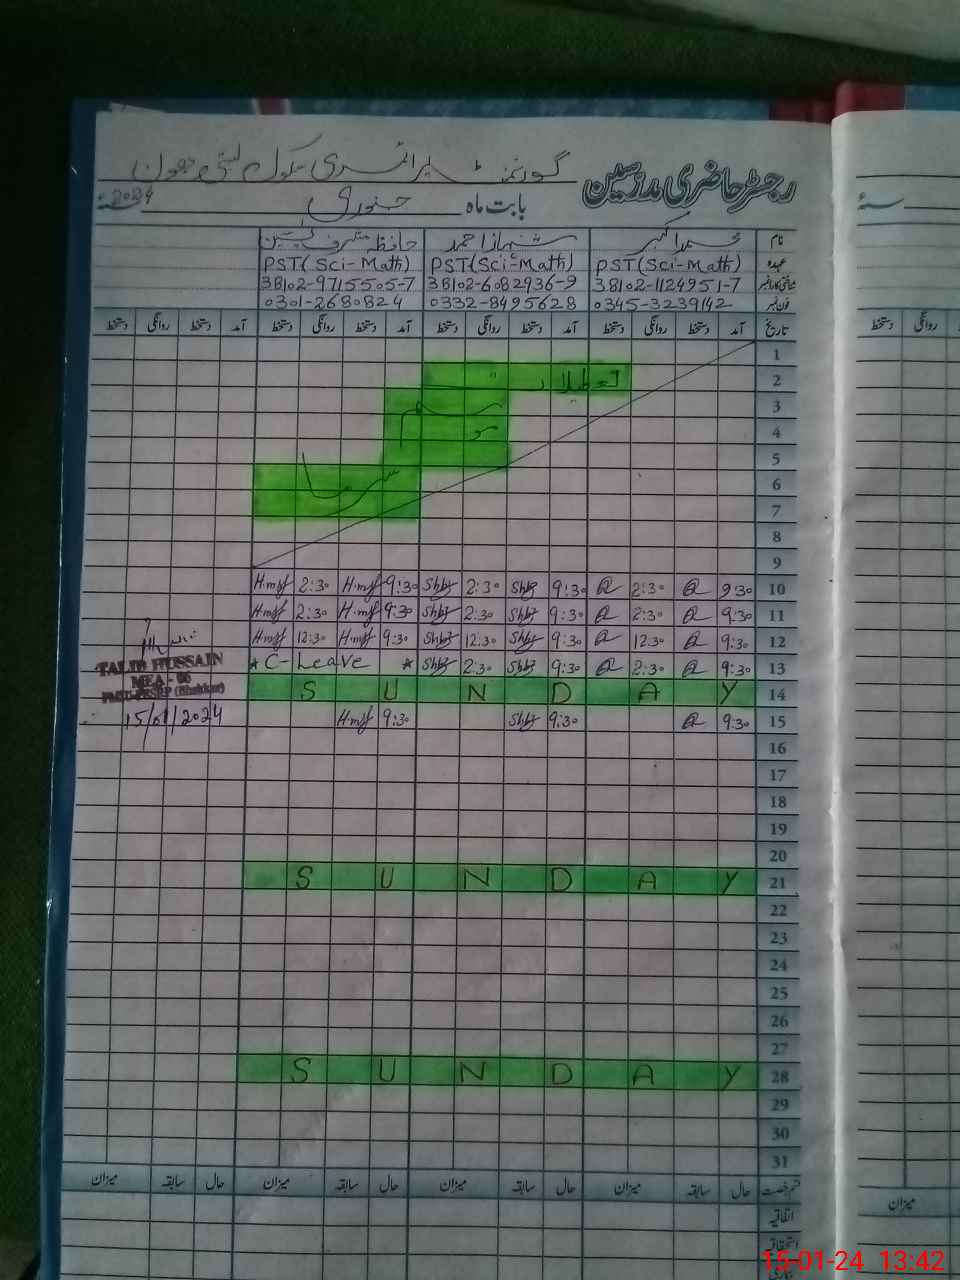 رجسٹر حاضری مدرسین گورنمنٹ پرائمری سکول بستی
بابت ماہ جنوری 2024 سنہء
نام محمد اکبر شہباز احمد حافظ مشرف یٰسین
عہدہ PST(Sci-Math) PST(Sci-Math) PST(Sci-Math)
شناختی کارڈ نمبر 38102-1124951-7 38102-6082936-9 38102-9715505-7
فون نمبر 0345-3239142 0332-8495628 0301-2680824
تاریخ آمد دستخط روانگی دستخط آمد دستخط روانگی دستخط آمد دستخط روانگی دستخط آمد دستخط روانگی دستخط
1
2 تعطیلات
3
4 موسم
5
6 سرما
7
8
9
10 9:30 2:30 9:30 2:30 9:30 2:30
11 9:30 2:30 9:30 2:30 9:30 2:30
12 9:30 12:30 9:30 12:30 9:30 12:30
13 9:30 2:30 9:30 2:30 * C-Leave *
TALIB HUSSAIN
MEA - 06
14 S U N D A Y
15 9:30 9:30 9:30 15/01/2024
16
17
18
19
20
21 S U N D A Y
22
23
24
25
26
27
28 S U N D A Y
29
30
31
قسم رخصت حال سابقہ میزان حال سابقہ میزان حال سابقہ میزان حال سابقہ میزان
اتفاقیہ
استحقاقی
سنہء
دستخط روانگی
میزان
15-01-24 13:42